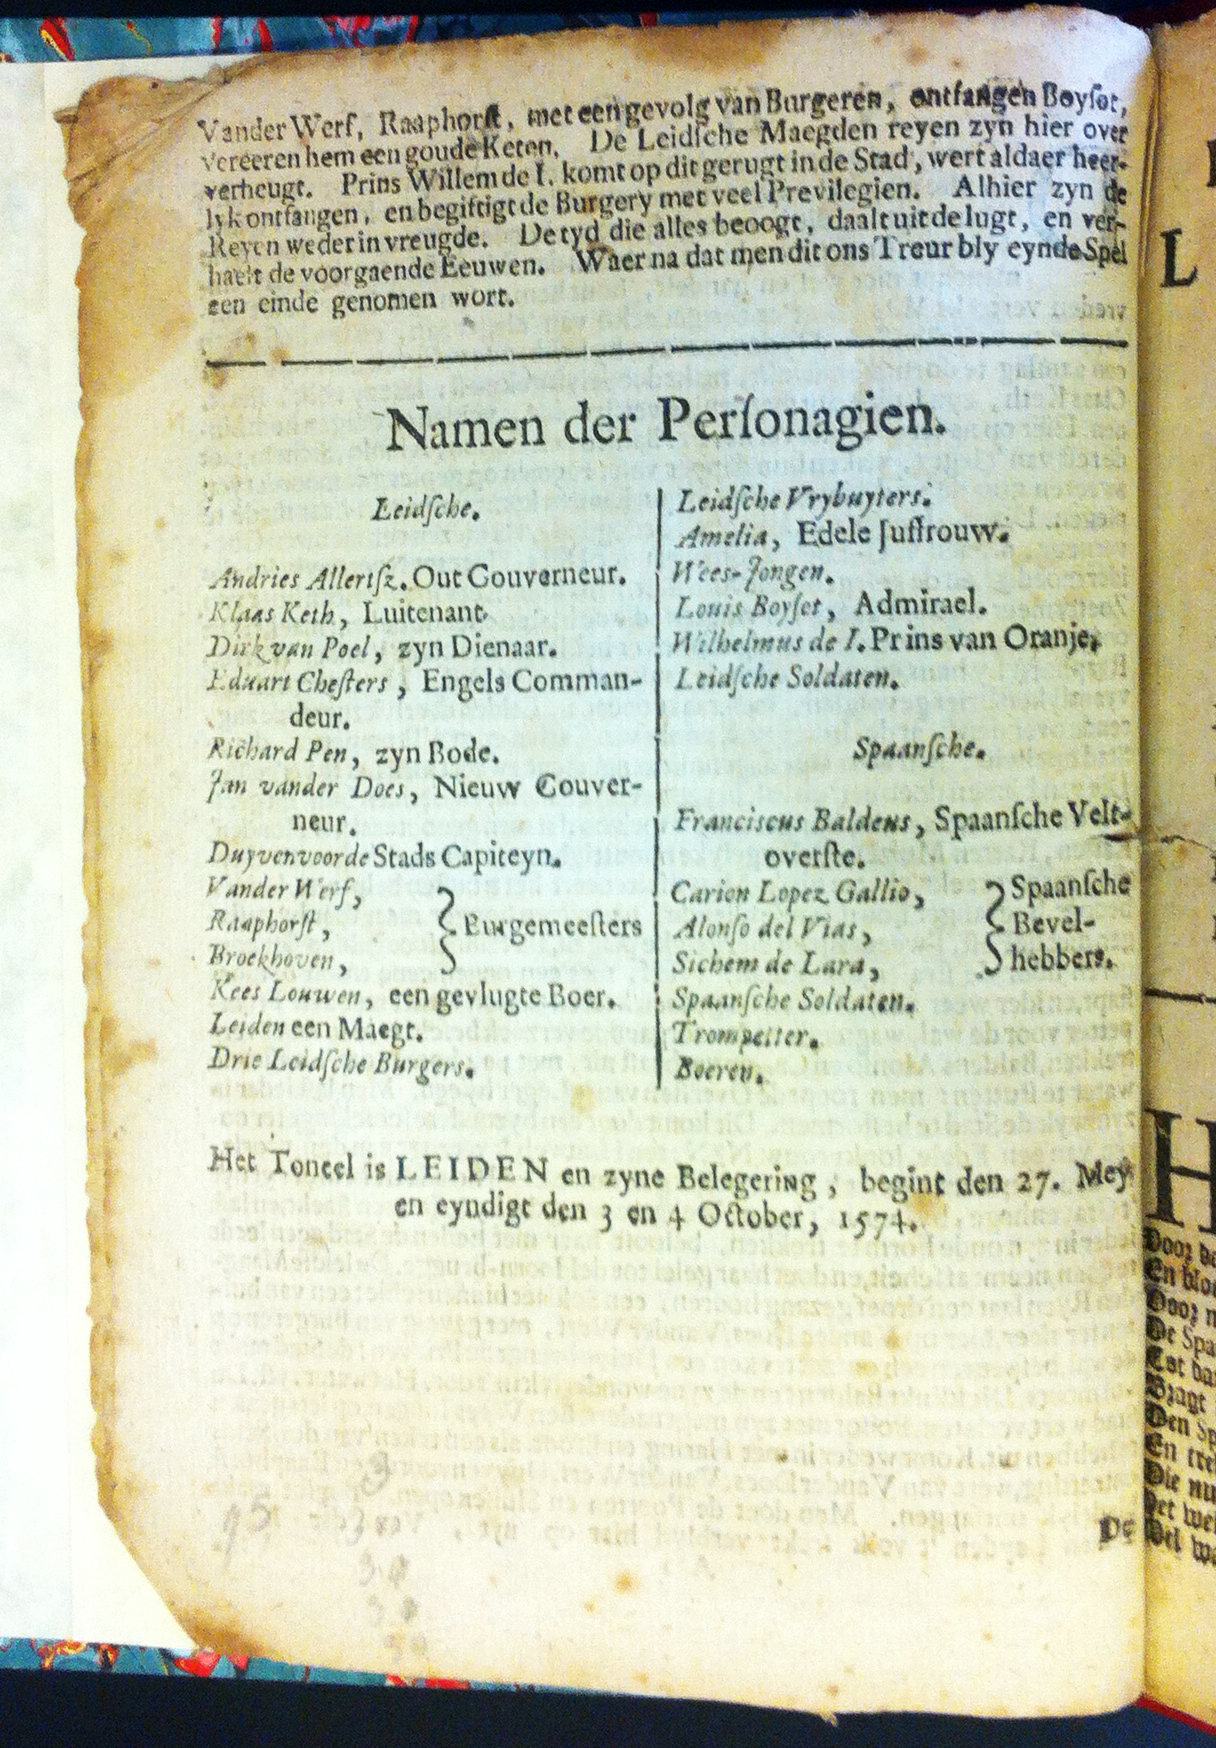 Vander Werf, Raaphorst, met een gevolg van Burgeren, ontfangen Boyſot,
vereeren hem een goude Keten. De Leidſche Maegden reyen zyn hier over
verheugt. Prins Willem de I. komt op dit gerugt in de Stad, wert aldaer heer-
lyk ontfangen, en begiftigt de Burgery met veel Previlegien. Alhier zyn de
Reyen weder in vreugde. De tyd die alles beoogt, daalt uit de lugt, en ver-
haelt de voorgaende Eeuwen. Waer na dat men dit ons Treur bly eynde Spel
een einde genomen wort.
Namen der Perſonagien.
Leidſche.
Andries Allertſz. Out Gouverneur.
Klaas Keth, Luitenant
Dirk van Poel, zyn Dienaar.
Eduart Cheſters, Engels Comman-
deur.
Richard Pen, zyn Bode.
Jan vander Does, Nieuw Gouver-
neur.
Duyvenvoorde Stads Capiteyn.
Vander Werf,
Raaphorſt, } Burgemeeſters
Broekhoven,
Kees Louwen, een gevlugte Boer.
Leiden een Maegt.
Drie Leidſche Burgers.
Leidſche Vrybuyters.
Amelia, Edele Juffrouw.
Wees-Jongen.
Louis Boyſot, Admirael.
Wilhelmus de I. Prins van Oranje.
Leidſche Soldaten.
Spaanſche.
Franciscus Baldeus, Spaanſche Velt-
overſte.
Carion Lopez Gallio, } Spaanſche
Alonſo del Vias, Bevel-
Sichem de Lara, hebbers.
Spaanſche Soldaten.
Trompetter.
Boeren.
Het Toneel is LEIDEN en zyne Belegering, begint den 27. Mey
en eyndigt den 3 en 4 October, 1574.
De
L
H
Door
En
Door
De Spa
Tot
Den Sp
En